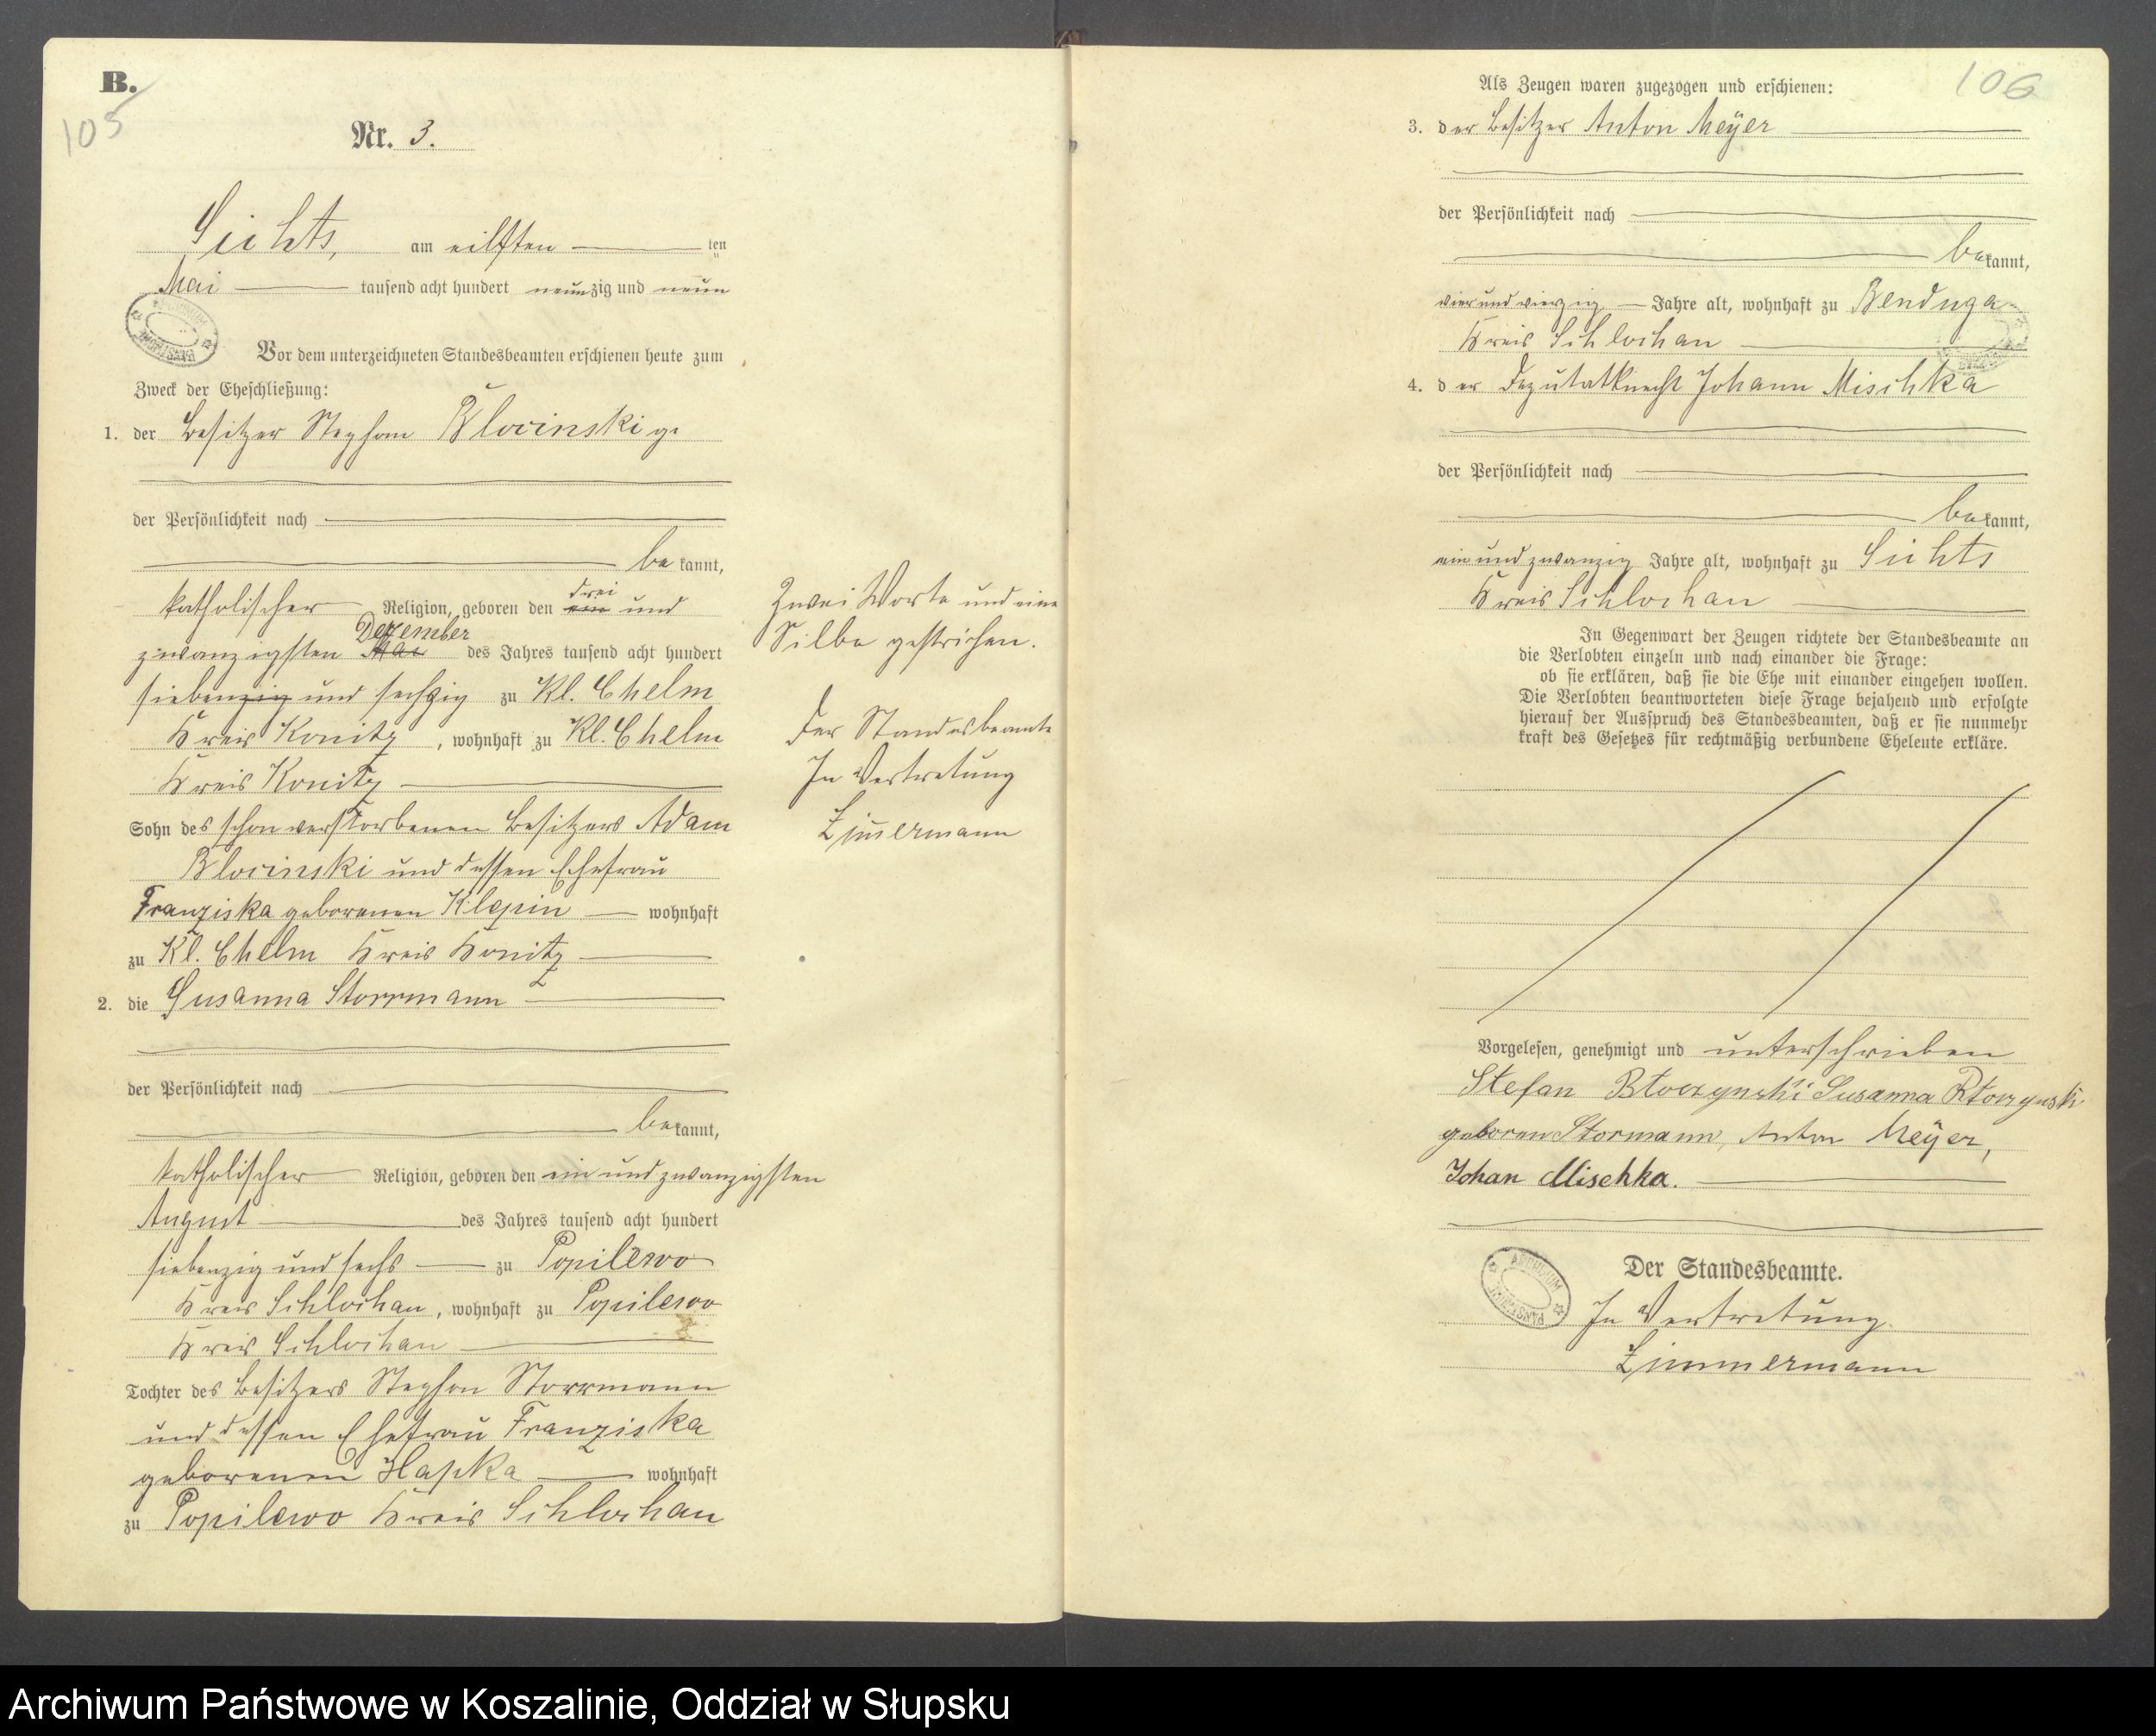 B.
105
Nr. 3.
Sichts, am eilften ten
Mai tausend acht hundert neunzig und neun
Vor dem unterzeichneten Standesbeamten erschienen heute zum
Zweck der Eheschließung:
1. der Besitzer Stephan Blocinski
der Persönlichkeit nach
bekannt,
katholischer Religion, geboren den ein drei und
zwanzigsten Mai Dezember des Jahres tausend acht hundert
siebenzig und sechzig zu Kl. Chelm
Kreis Konitz, wohnhaft zu Kl. Chelm
Kreis Konitz
Sohn des schon verstorbenen Besitzers Adam
Blocinski und dessen Ehefrau
Franziska geborenen Klepin wohnhaft
zu Kl. Chelm Kreis Konitz
2. die Susanna Storrmann
der Persönlichkeit nach
bekannt,
katholischer Religion, geboren den ein und zwanzigsten
August des Jahres tausend acht hundert
siebenzig und sechs zu Popilewo
Kreis Schlochau, wohnhaft zu Popilewo
Kreis Schlochau
Tochter des Besitzers Stephan Storrmann
und dessen Ehefrau Franziska
geborenen Hapka wohnhaft
zu Popilewo Kreis Schlochau
Zwei Worte und eine
Silbe gestrichen.
Der Standesbeamte
In Vertretung
Zimermann
106
Als Zeugen waren zugezogen und erschienen:
3. der Besitzer Anton Meÿer
der Persönlichkeit nach
bekannt,
vier und vierzig Jahre alt, wohnhaft zu Benduga
Kreis Schlochau
4. der Deputatknecht Johann Mischka
der Persönlichkeit nach
bekannt,
ein und zwanzig Jahre alt, wohnhaft zu Sichts
Kreis Schlochau
In Gegenwart der Zeugen richtete der Standesbeamte an
die Verlobten einzeln und nach einander die Frage:
ob sie erklären, daß sie die Ehe mit einander eingehen wollen.
Die Verlobten beantworteten diese Frage bejahend und erfolgte
hierauf der Ausspruch des Standesbeamten, daß er sie nunmehr
kraft des Gesetzes für rechtmäßig verbundene Eheleute erkläre.
Vorgelesen, genehmigt und unterschrieben
Stefan Susanna
geboren Stormann, Anton Meÿer,
Johan Mischka.
ARCHIWUM
Der Standesbeamte.
In Vertretung
Zimmermann
Archiwum Państwowe w Koszalinie, Oddział w Słupsku